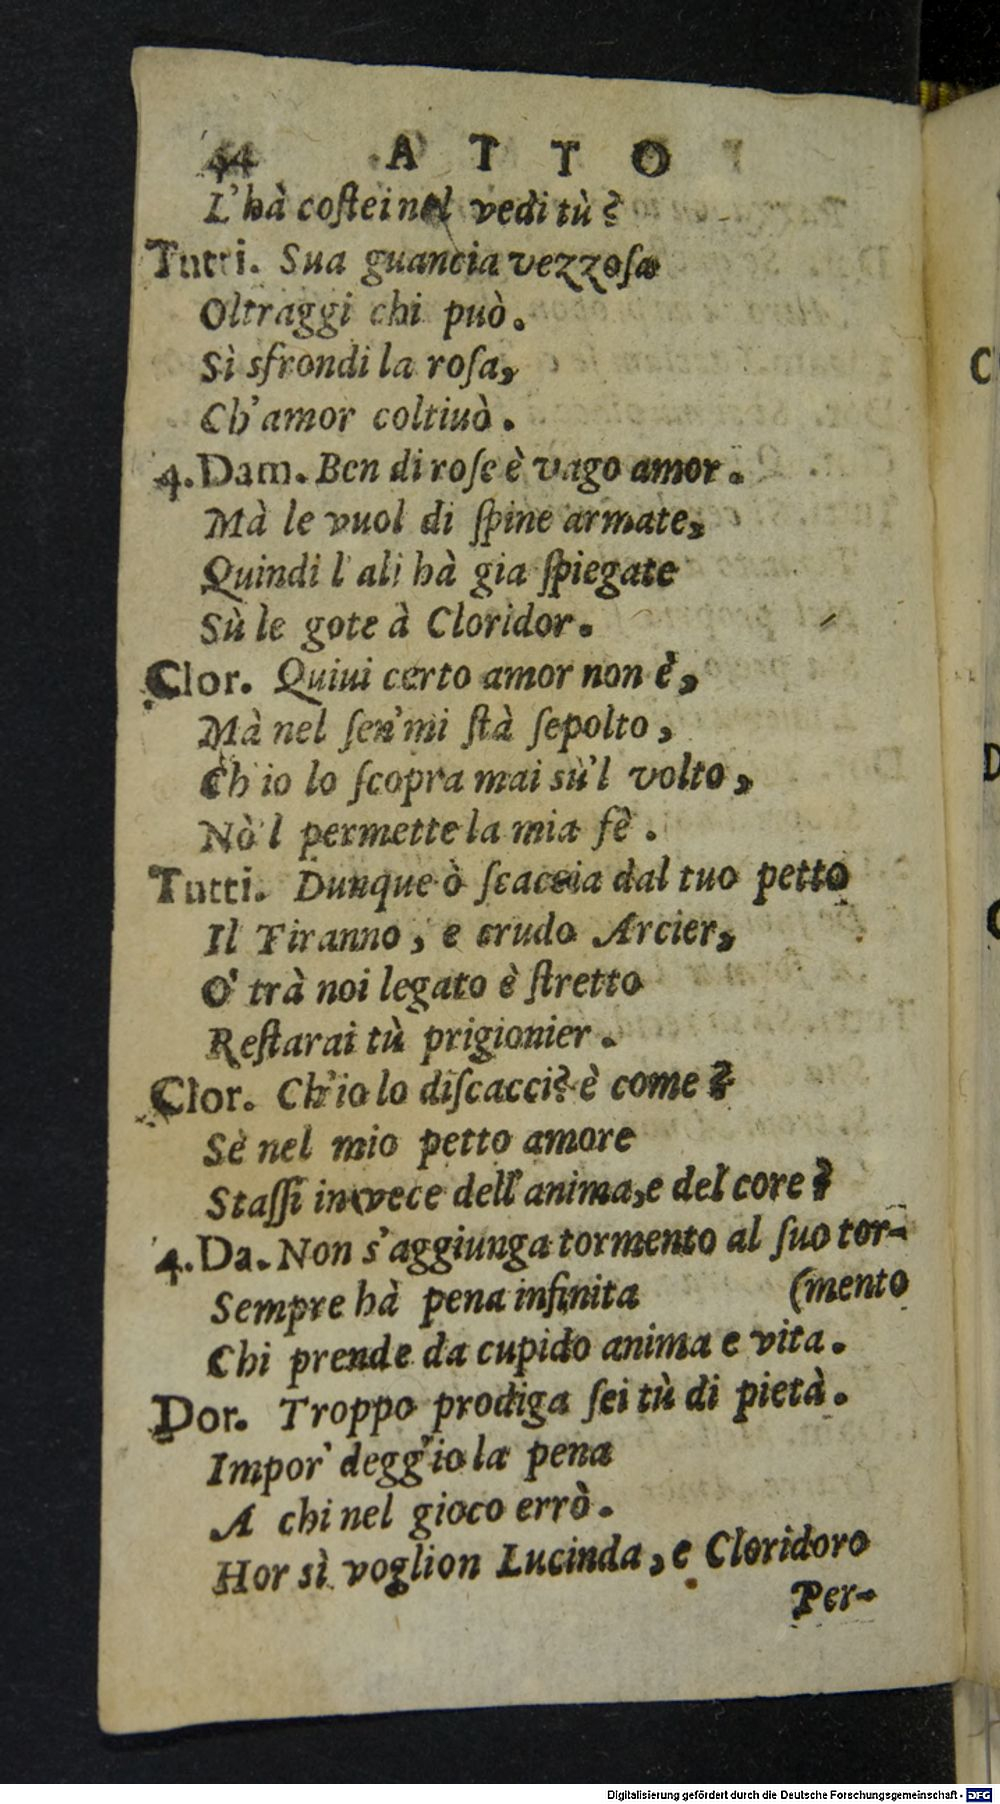 44 ATTO
L'hà costei nel vedi tù?
Tutti. Sua guancia vezzosa
Oltraggi chi può.
Sì sfrondi la rosa,
Ch'amor coltiuò.
4. Dam. Ben di rose è vago amor.
Mà le vuol di spine armate,
Quindi l'ali hà gia spiegate
Sù le gote à Cloridor.
Clor. Quiui certo amor non è,
Mà nel sen'mi stà sepolto,
Ch'io lo scopra mai sù'l volto,
Nò'l permette la mia fè.
Tutti. Dunque ò scaccia dal tuo petto
Il Tiranno, e crudo Arcier,
O' trà noi legato è stretto
Restarai tù prigionier.
Clor. Ch'io lo discacci? è come?
Sè nel mio petto amore
Stassi in vece dell'anima, e del core?
4. Da. Non s'aggiunga tormento al suo tor-
Sempre hà pena infinita (mento
Chi prende da cupido anima e vita.
Dor. Troppo prodiga sei tù di pietà.
Impor' degg'io la pena
A chi nel gioco errò.
Hor sì voglion Lucinda, e Cloridoro
Per-
C
D
C
Digitalisierung gefördert durch die Deutsche Forschungsgemeinschaft - DFG